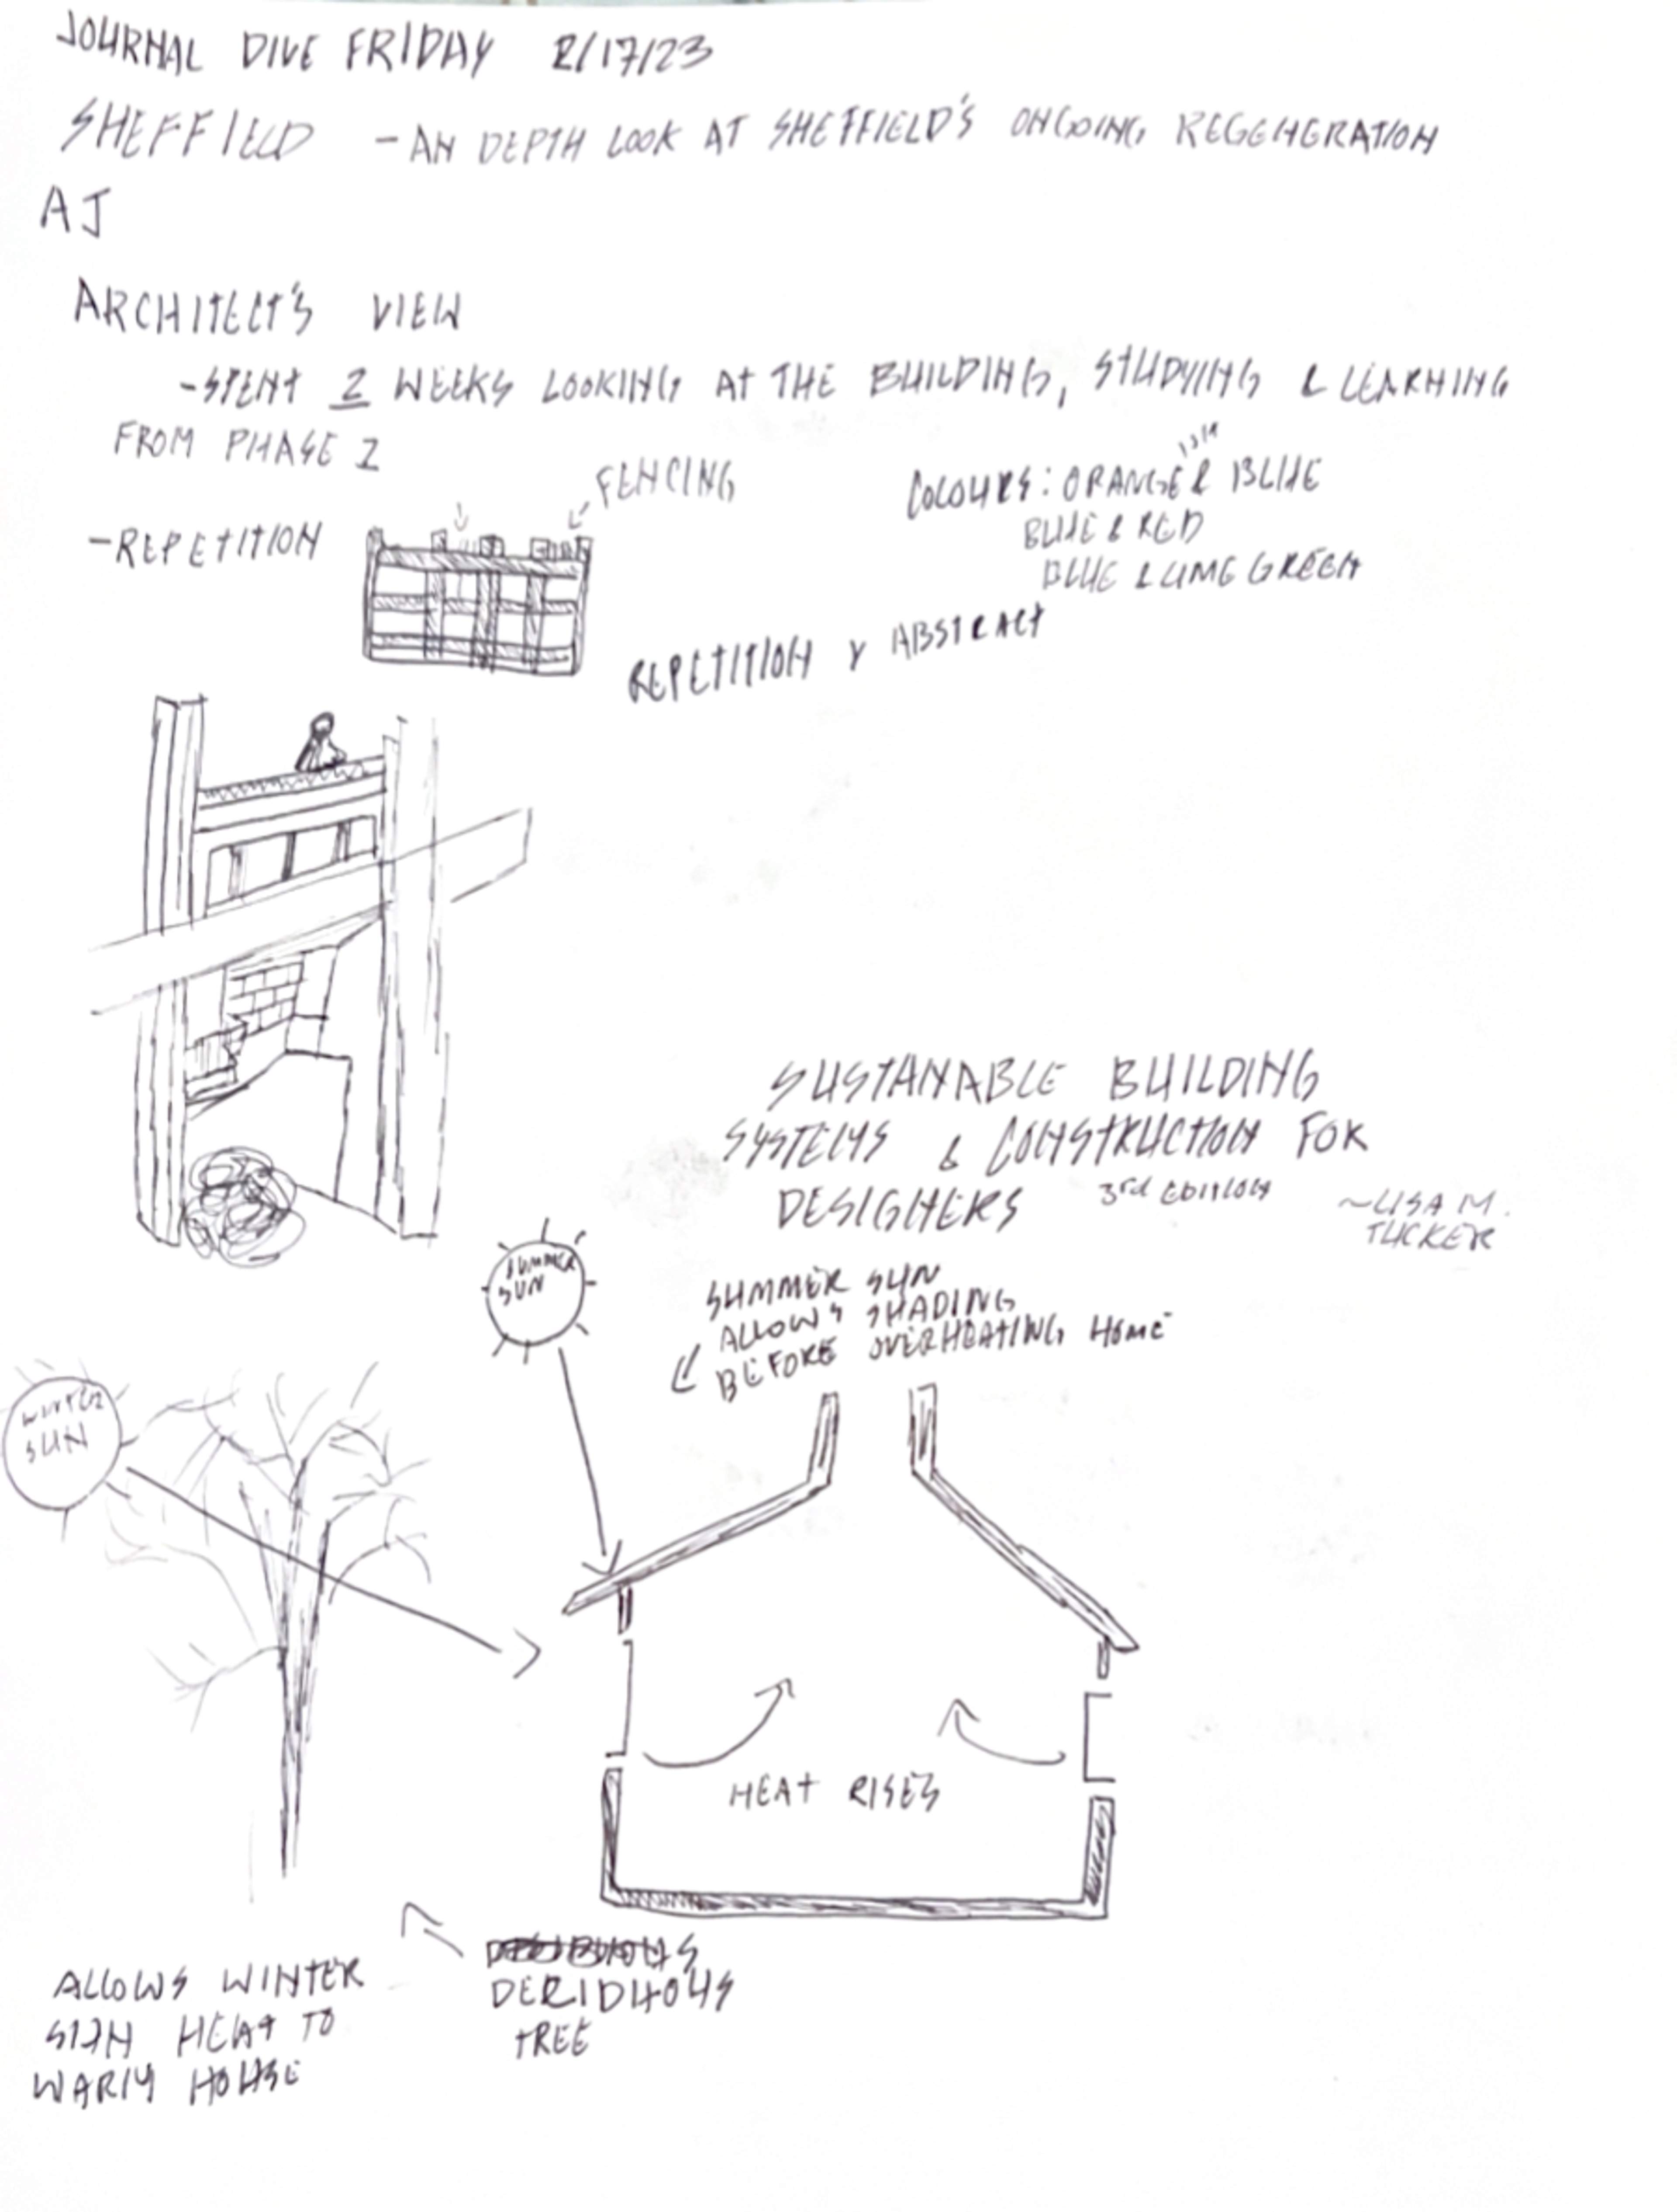 JOURNAL DIVE FRIDAY 2/17/23
SHEFFIELD - AN DEPTH LOOK AT SHEFFIELD'S ONGOING REGENERATION
AJ
ARCHITECT'S VIEW
-SPENT 2 WEEKS LOOKING AT THE BUILDING, STUDYING & LEARNING
FROM PHASE I
FENCING
-REPETITION
COLOURS: ORANGE & BLUE
BLUE & RED
BLUE & LIME GREEN
REPETITION & ABSTRACT
SUSTANABLE BUILDING
SYSTEMS & CONSTRUCTION FOR
DESIGNERS 3rd EDITION ~LISA M.
TUCKER
SUMMER
SUN
SUMMER SUN
ALLOWS SHADING
BEFORE OVERHEATING HOME
WINTER
SUN
HEAT RISES
DERIDUOUS
TREE
ALLOWS WINTER
SUN HEAT TO
WARM HOUSE